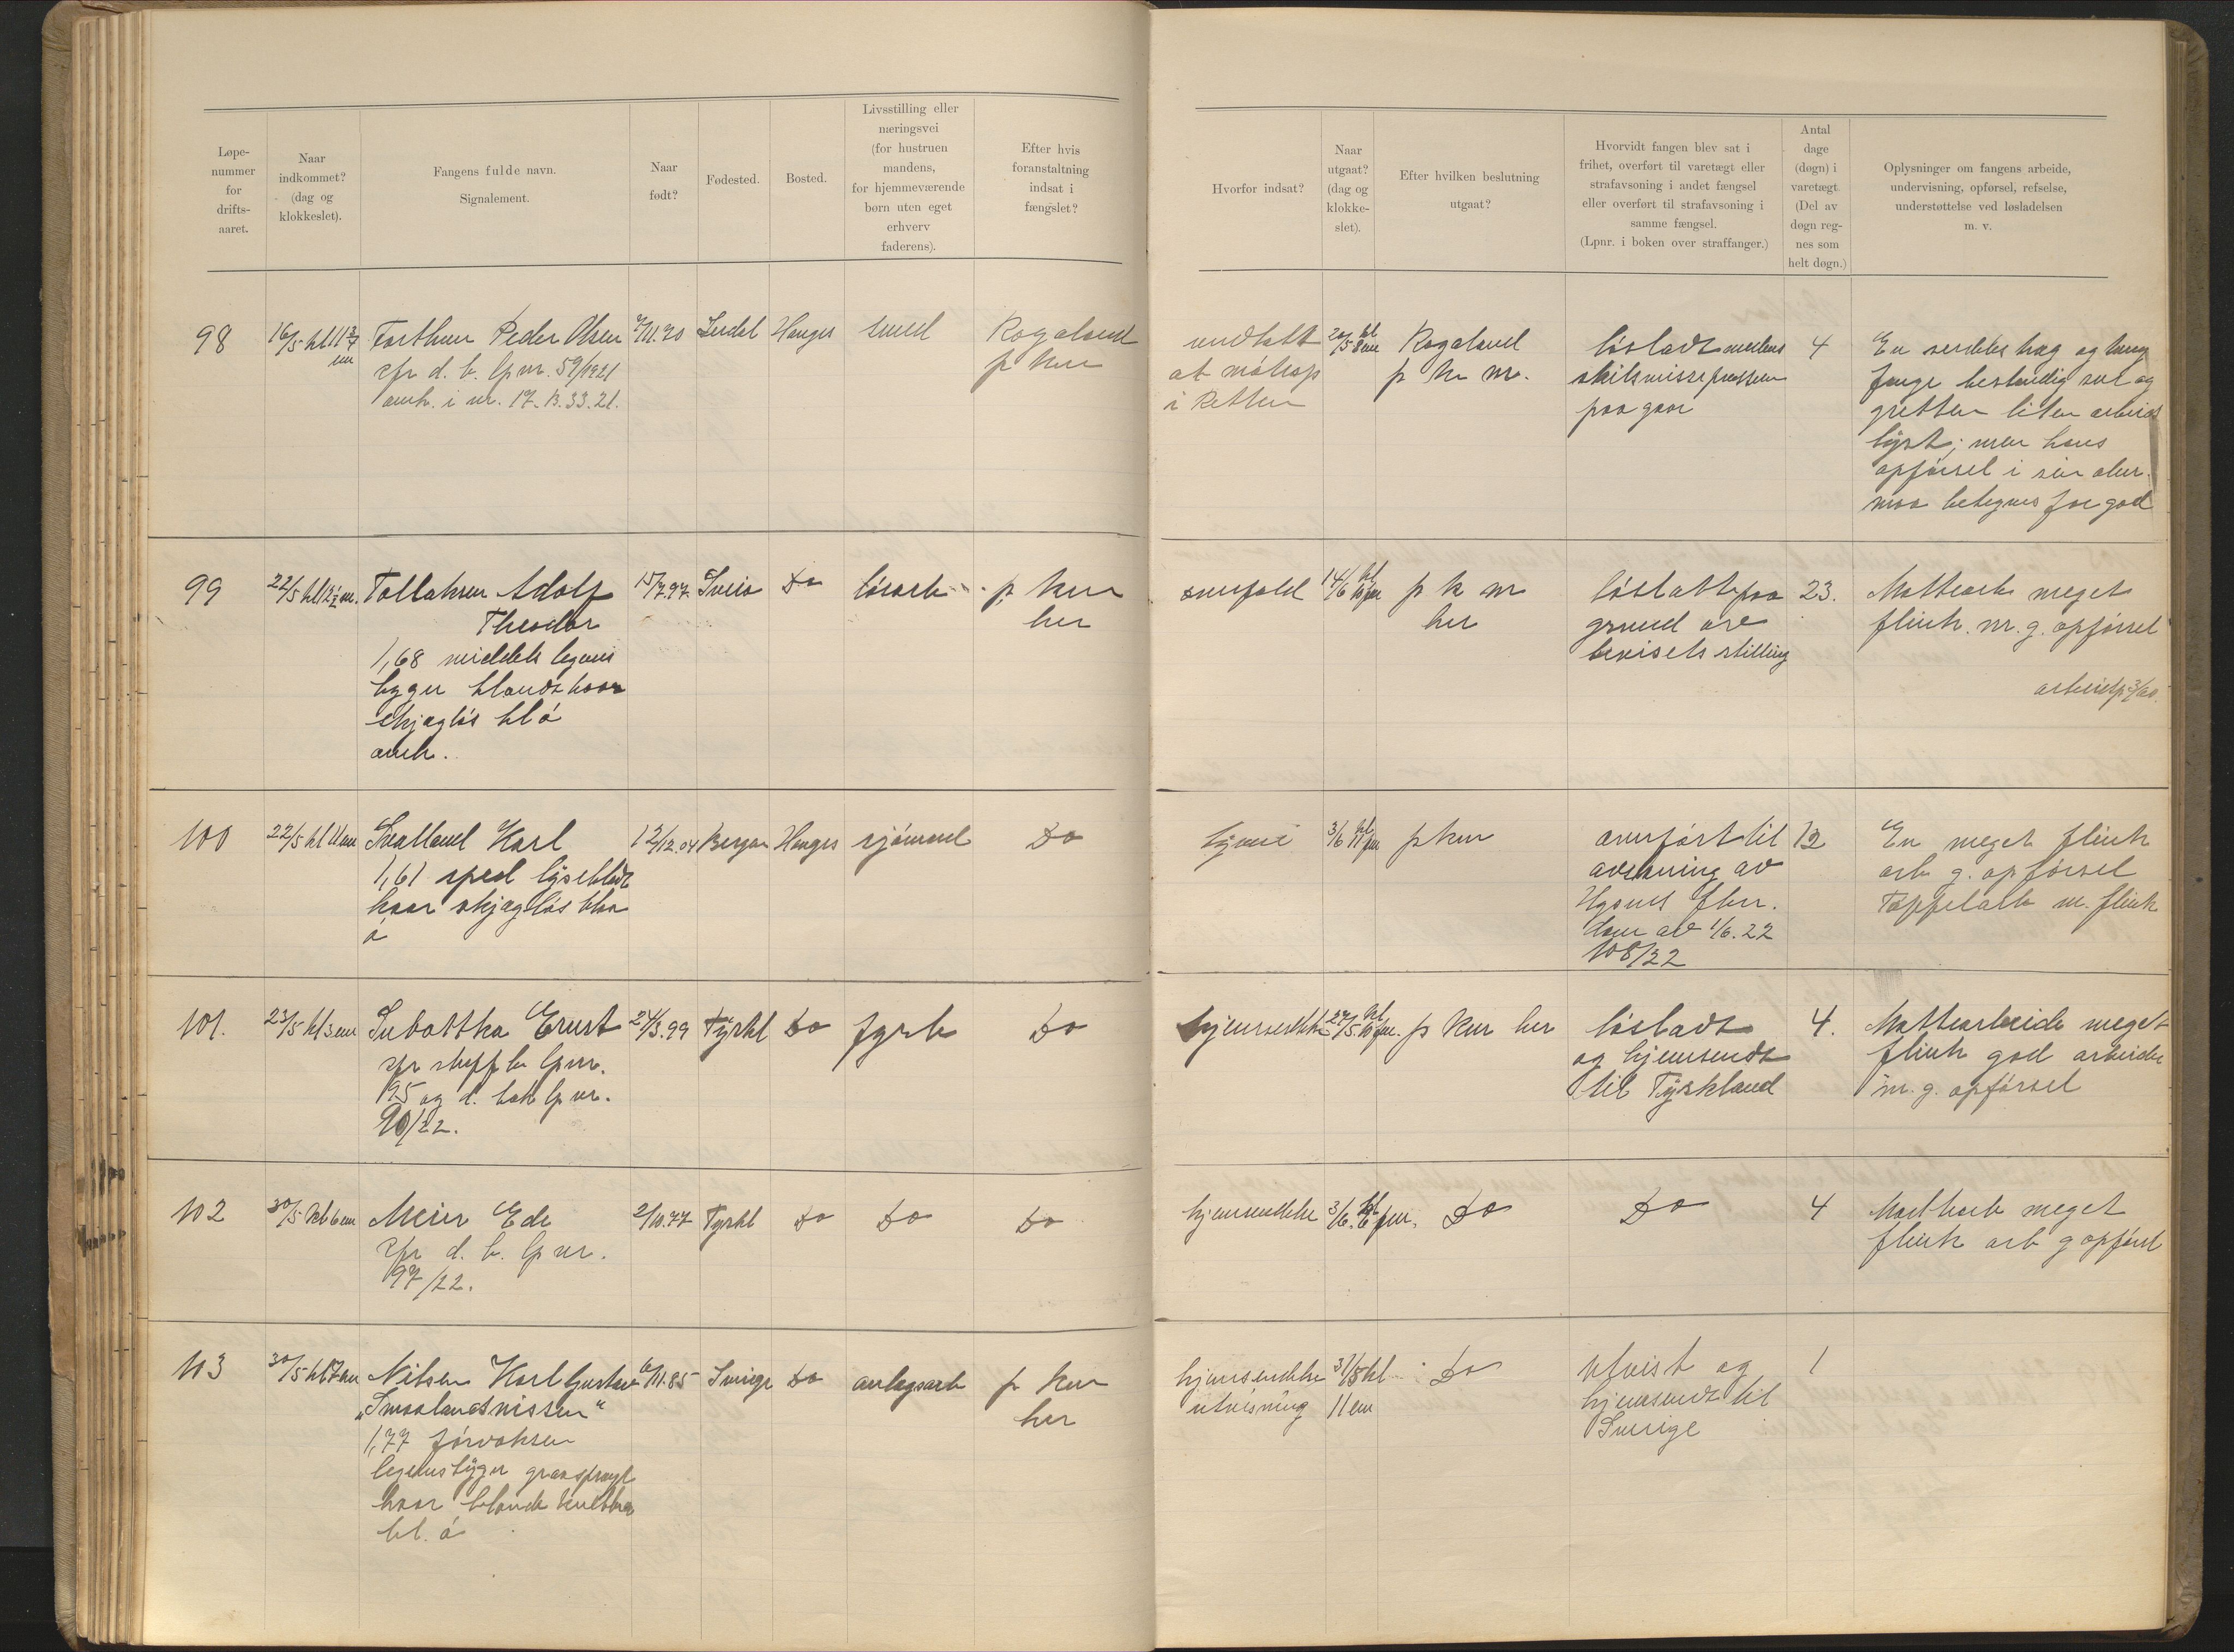 Løpe-
nummer
for
drifts-
aaret.
Naar
indkommet?
(dag og
klokkeslet).
Fangens fulde navn.
Signalement.
Naar
født?
Fødested.
Bosted.
Livsstilling eller
næringsvei
(for hustruen
mandens,
for hjemmeværende
børn uten eget
erhverv
faderens).
Efter hvis
foranstaltning
indsat i
fængslet?
Hvorfor indsat?
Naar
utgaat?
(dag og
klokke-
slet).
Efter hvilken beslutning
utgaat?
Hvorvidt fangen blev sat i
frihet, overført til varetægt eller
strafavsoning i andet fængsel
eller overført til strafavsoning i
samme fængsel.
(Lpnr. i boken over straffanger.)
Antal
dage
(døgn) i
varetægt
(Del av
døgn reg-
nes som
helt døgn.)
Oplysninger om fangens arbeide,
undervisning, opførsel, refselse,
understøttelse ved løsladelsen
m. v.
98
16/5 kl 11
Peder Olsen
cfr d. b. lpnr. 59/1921
anh. i nr. 17. B. 33. 21.
Smed
Rogaland
p km
undlatt
at
i Retten
20/5 kl 8
Rogaland
p km
løsladt medens
skilsmisseprossen
paagaar
4
En
fange bestandig sur og
gretten liten arbeids
lyst; men hans
opførsel i sin alm.
maa betegnes for god
99
22/5 kl
Tollaksen Adolf
Theodor
1,68 middels legems
bygn blondt haar
skjægløs bl ø
anh.
15/7.97
Sveio
Do
løsarb
p. km
her
overfald
14/6 kl 10 fm
p k m
her
løslatt paa
grund av
bevisets stilling
23.
Mattearb meget
flink. m. g. opførsel
100
22/5 kl 11 em
Karl
1,61 sped lyseblødt
haar skjægløs blaa
ø
12/12.04
Bergen
Hauges
sjømand
Do
3/6 kl 11 fm
p km
overført til
avsoning av
dom av 1/6.22
108/22
12
En meget flink
arb g. opførsel
Tøppelarb m. flink
101.
23/5 kl 3 em
Subottka Ernst
cfr lpnr.
95 og d. bok lpnr.
90/22.
24/3.99
Tyskl
Do
fyrb
Do
hjemsendelse
27/5 kl 10 fm.
p km her
løsladt
og hjemsendt
til Tyskland
4.
Mattearbeide meget
flink god arbeider
m. g. opførsel
102
30/5 kl 6 em
Meier Ede
cfr d. b. lpnr.
97/22.
2/10.77
Tyskl
Do
Do
Do
hjemsendelse
3/6. kl 6 fm.
Do
Do
4
Mattearb meget
flink arb g opførsel
103
30/5 kl 7 em
Nilsen Karl Gustav
„Smaalandsnissen“
1,77 førvoksen
legemsbygn graasprengt
haar blonde
bl. ø
6/11.85
Sverige
Do
anlegsarb
p km
her
hjemsendelse
utvisning
31/5 kl
11 em
Do
utvist og
hjemsendt til
Sverige
1